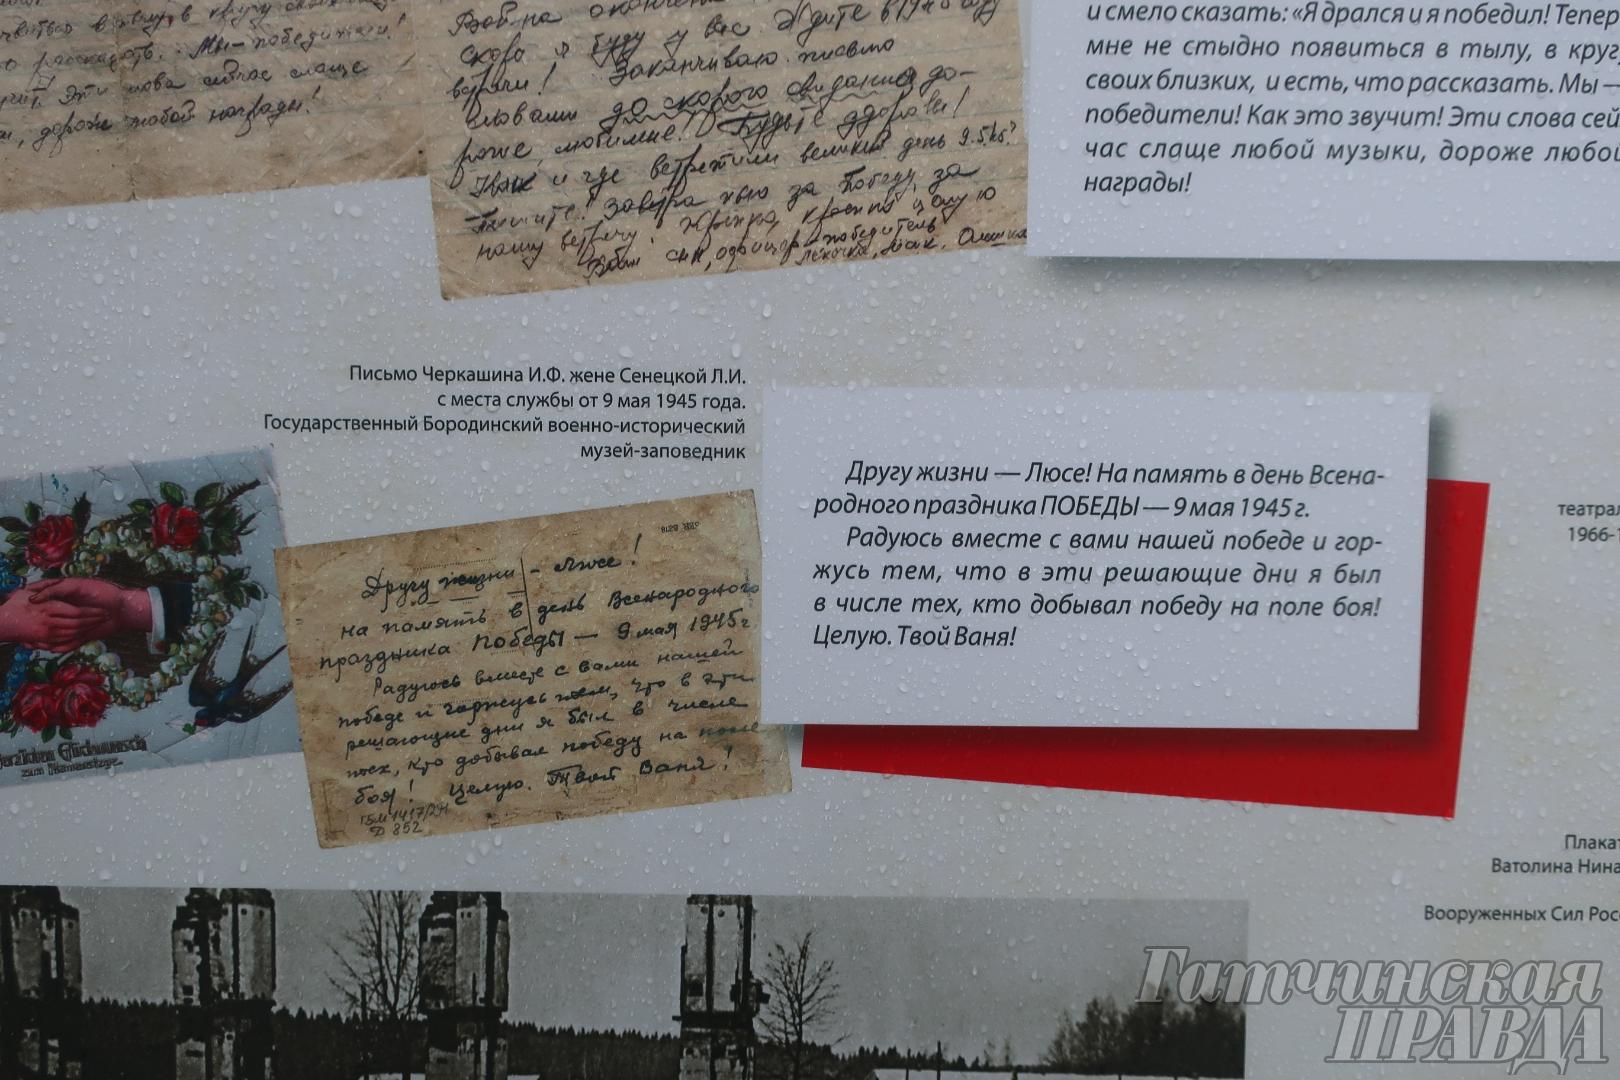 чвиться в тылу, в кругу своих
о рассказать. Мы - победители!
учит. Эти слова сейчас слаще
и, дороже любой награды!
Война окончена
скоро я буду у вас. Ждите в 1945 году
встречи! Заканчиваю письмо
словами до скорого свидания до-
рогие, любимые! Будьте здоровы!
Как и где встретили великий день 9.5.45?
Пишите! Завтра пью за Победу, за
нашу встречу. крепко целую
Ваш сын, офицер-победитель
и смело сказать: «Я дрался и я победил! Тепер
мне не стыдно появиться в тылу, в круг
своих близких, и есть, что рассказать. Мы —
победители! Как это звучит! Эти слова сей
час слаще любой музыки, дороже любой
награды!
Письмо Черкашина И.Ф. жене Сенецкой Л.И.
с места службы от 9 мая 1945 года.
Государственный Бородинский военно-исторический
музей-заповедник
Herzlichen Glückwunsch
zum Namenstage.
Другу жизни - Люсе!
на память в день Всенародного
праздника Победы — 9 мая 1945 г.
Радуюсь вместе с вами нашей
победе и горжусь тем, что в эти
решающие дни я был в числе
тех, кто добывал победу на поле
боя! Целую. Твой Ваня!
ГБМ 1417/291
Д 852
Другу жизни — Люсе! На память в день Всена-
родного праздника ПОБЕДЫ — 9 мая 1945 г.
Радуюсь вместе с вами нашей победе и гор-
жусь тем, что в эти решающие дни я был
в числе тех, кто добывал победу на поле боя!
Целую. Твой Ваня!
театрал
1966-1
Плакат
Ватолина Нина
Вооруженных Сил Рос
Гатчинская
ПРАВДА